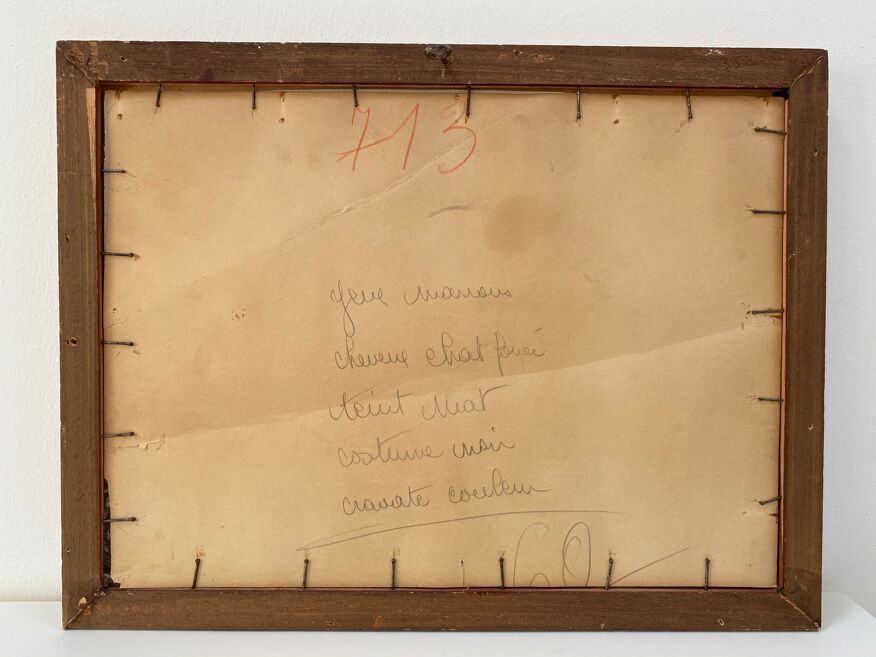 713
yeux marrons
cheveux chat foncé
teint mat
costume noir
cravate couleur